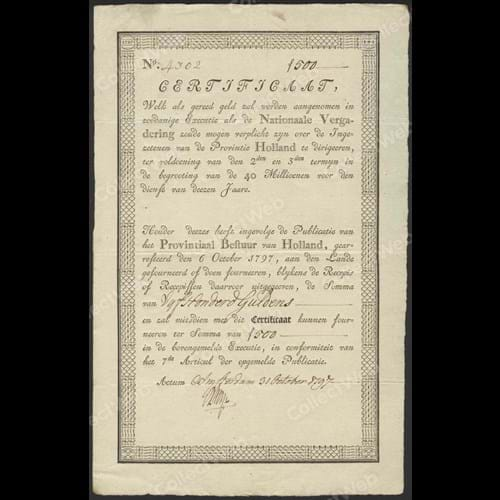 No: 4302 f500
CERTIFICAAT,
Welk als gereed geld zal werden aangenomen in
zodanige Executie als de Nationaale Verga-
dering zoude mogen verplicht zyn over de Inge-
zetenen van de Provintie Holland te dirigeeren,
ter voldoening van den 2den en 3den termyn in
de begrooting van de 40 Millioenen voor den
dienst van deezen Jaare.
Houder deezes heeft ingevolge de Publicatie van
het Provintiaal Bestuur van Holland, gear-
resteerd den 6 October 1797, aan den Lande
gefourneerd of doen fourneeren, blykens de Recepis
of Recepissen daarvoor uitgegeeven, de Somma
van Vyf Honderd Guldens
en zal mitsdien met dit Certificaat kunnen four-
neeren ter Somma van f500
in de bovengemelde Executie, in conformiteit van
het 7de Articul der opgemelde Publicatie.
Actum Amsterdam 31 October 1797